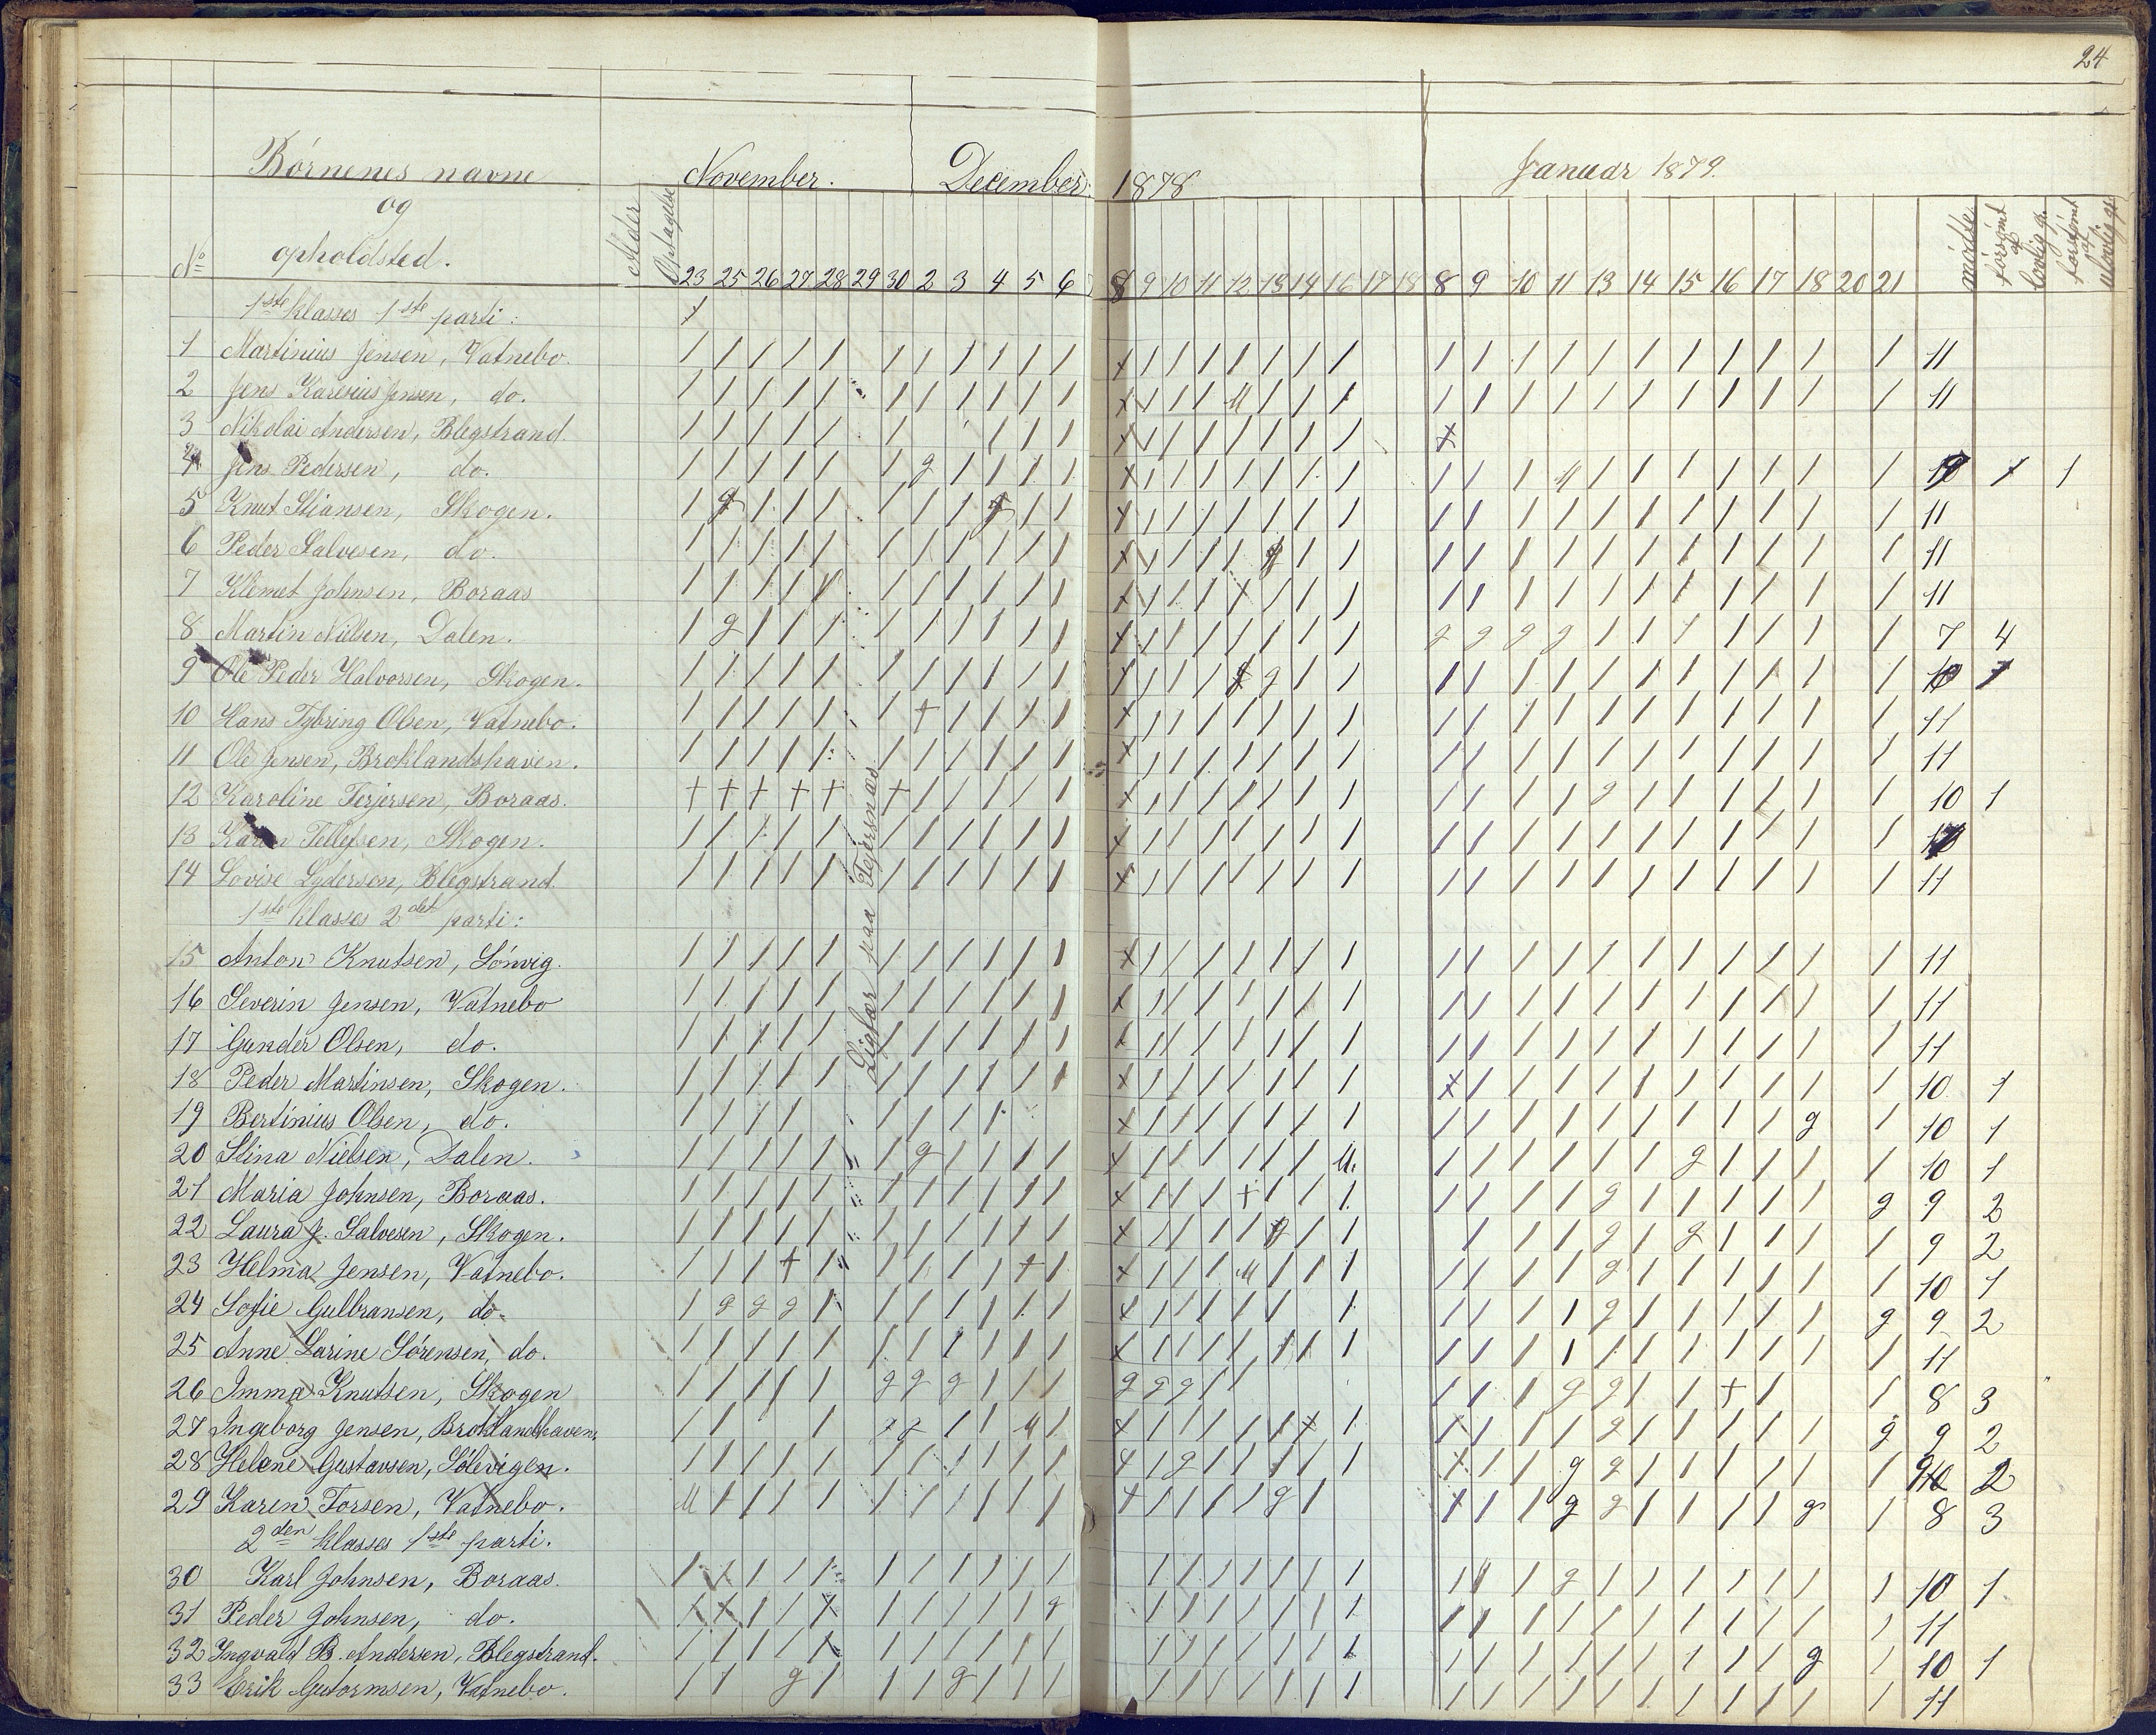 24
Børnenes navne
og
opholdsted.
No
Alder
Optagelse
November.
December. 1878
Januar 1879.
23 25 26 27 28 29 30 2 3 4 5 6 8 9 10 11 12 13 14 16 17 18 8 9 10 11 13 14 15 16 17 18 20 21
mødte
forsømt af lovlig gr.
forsømt af ulovlig gr.
1ste klasses 1ste parti: x
1 Martinius Jensen, Vatnebo. 11
2 Jens Karenius Jensen, do. 11
3 Nikolai Andersen, Blegstrand.
4 Jens Pedersen, do. 1
5 Knut Stiansen, Skogen. 11
6 Peder Salvesen, do. 11
7 Klemet Johnsen, Boraas 11
8 Martin Nilsen, Dalen. 7 4
9 Ole Peder Halvorsen, Skogen.
10 Hans Tybring Olsen, Vatnebo. 11
11 Ole Jensen, Broklandshaven. 11
12 Karoline Terjersen, Boraas. 10 1
13 Karen Tellefsen, Skogen.
14 Lovise Lydersen, Blegstrand. 11
1ste klasses 2det parti:
15 Anton Knutsen, Sønvig. 11
16 Severin Jensen, Vatnebo 11
17 Gunder Olsen, do. 11
18 Peder Martinsen, Skogen. 10 1
19 Bertinius Olsen, do. 10 1
20 Stina Nielsen, Dalen. 10 1
21 Maria Johnsen, Boraas. 9 2
22 Laura J. Salvesen, Skogen. 9 2
23 Helma Jensen, Vatnebo. 10 1
24 Sofie Gulbransen, do. 9 2
25 Anne Larine Sørensen, do. 11
26 Imma Knutsen, Skogen 8 3
27 Ingeborg Jensen, Broklandshaven. 9 2
28 Helene Gustavsen, Sølevigen. 9 2
29 Karen Torsen, Vatnebo. 8 3
2den klasses 1ste parti.
30 Karl Johnsen, Boraas. 10 1
31 Peder Johnsen, do. 11
32 Ingvald B. Andersen, Blegstrand. 10 1
33 Erik Gutormsen, Vatnebo. 11
Ligfar paa Tejersnæs